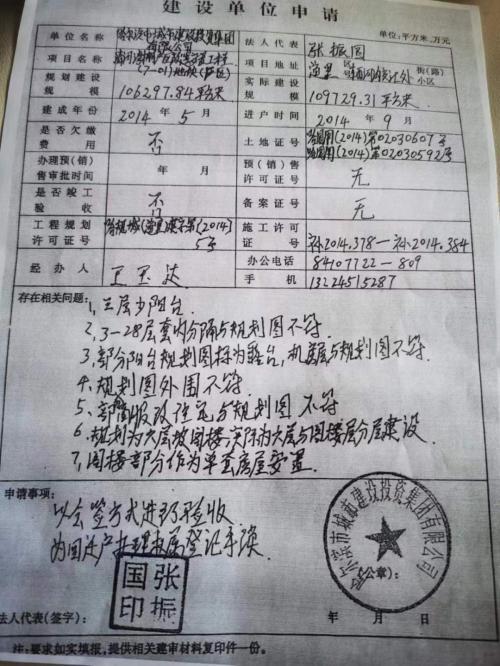 建设单位申请
单位:平方米、万元
单位名称 哈尔滨市城市建设投资集团有限公司 法人代表 张振国
项目名称 项目地址 道里
规划建设规模 106297.84平方米 实际建设规模 109729.31平方米
建成年份 2014年5月 进户时间 2014年9月
是否欠缴费用 否 土地证号 (2014)第02030607号
(2014)第02030592号
办理预(销)售审批时间 年 月 预(销)售许可证号 无
是否竣工验收 否 备案证号 无
工程规划许可证号 (2014)5号 施工许可证号 补2014.378—补2014.384
经办人 办公电话 84107722—809
手机 13224515287
存在相关问题:
1,三层少阳台.
2,3-28层套内分隔与规划图不符.
3,部分阳台规划图标为露台,机房层与规划图不符.
4,规划图外围不符.
5,与规划图不符
6,规划为六层坡阁楼,实际为六层与阁楼层分层建设.
7,阁楼部分作为单套房屋安置.
申请事项:
以会签方式进行验收
为回迁户办理权属登记手续.
哈尔滨市城市建设投资集团有限公司
(公章):
张振国印
法人代表(签字):
年 月 日
注:要求如实填报,提供相关建审材料复印件一份。